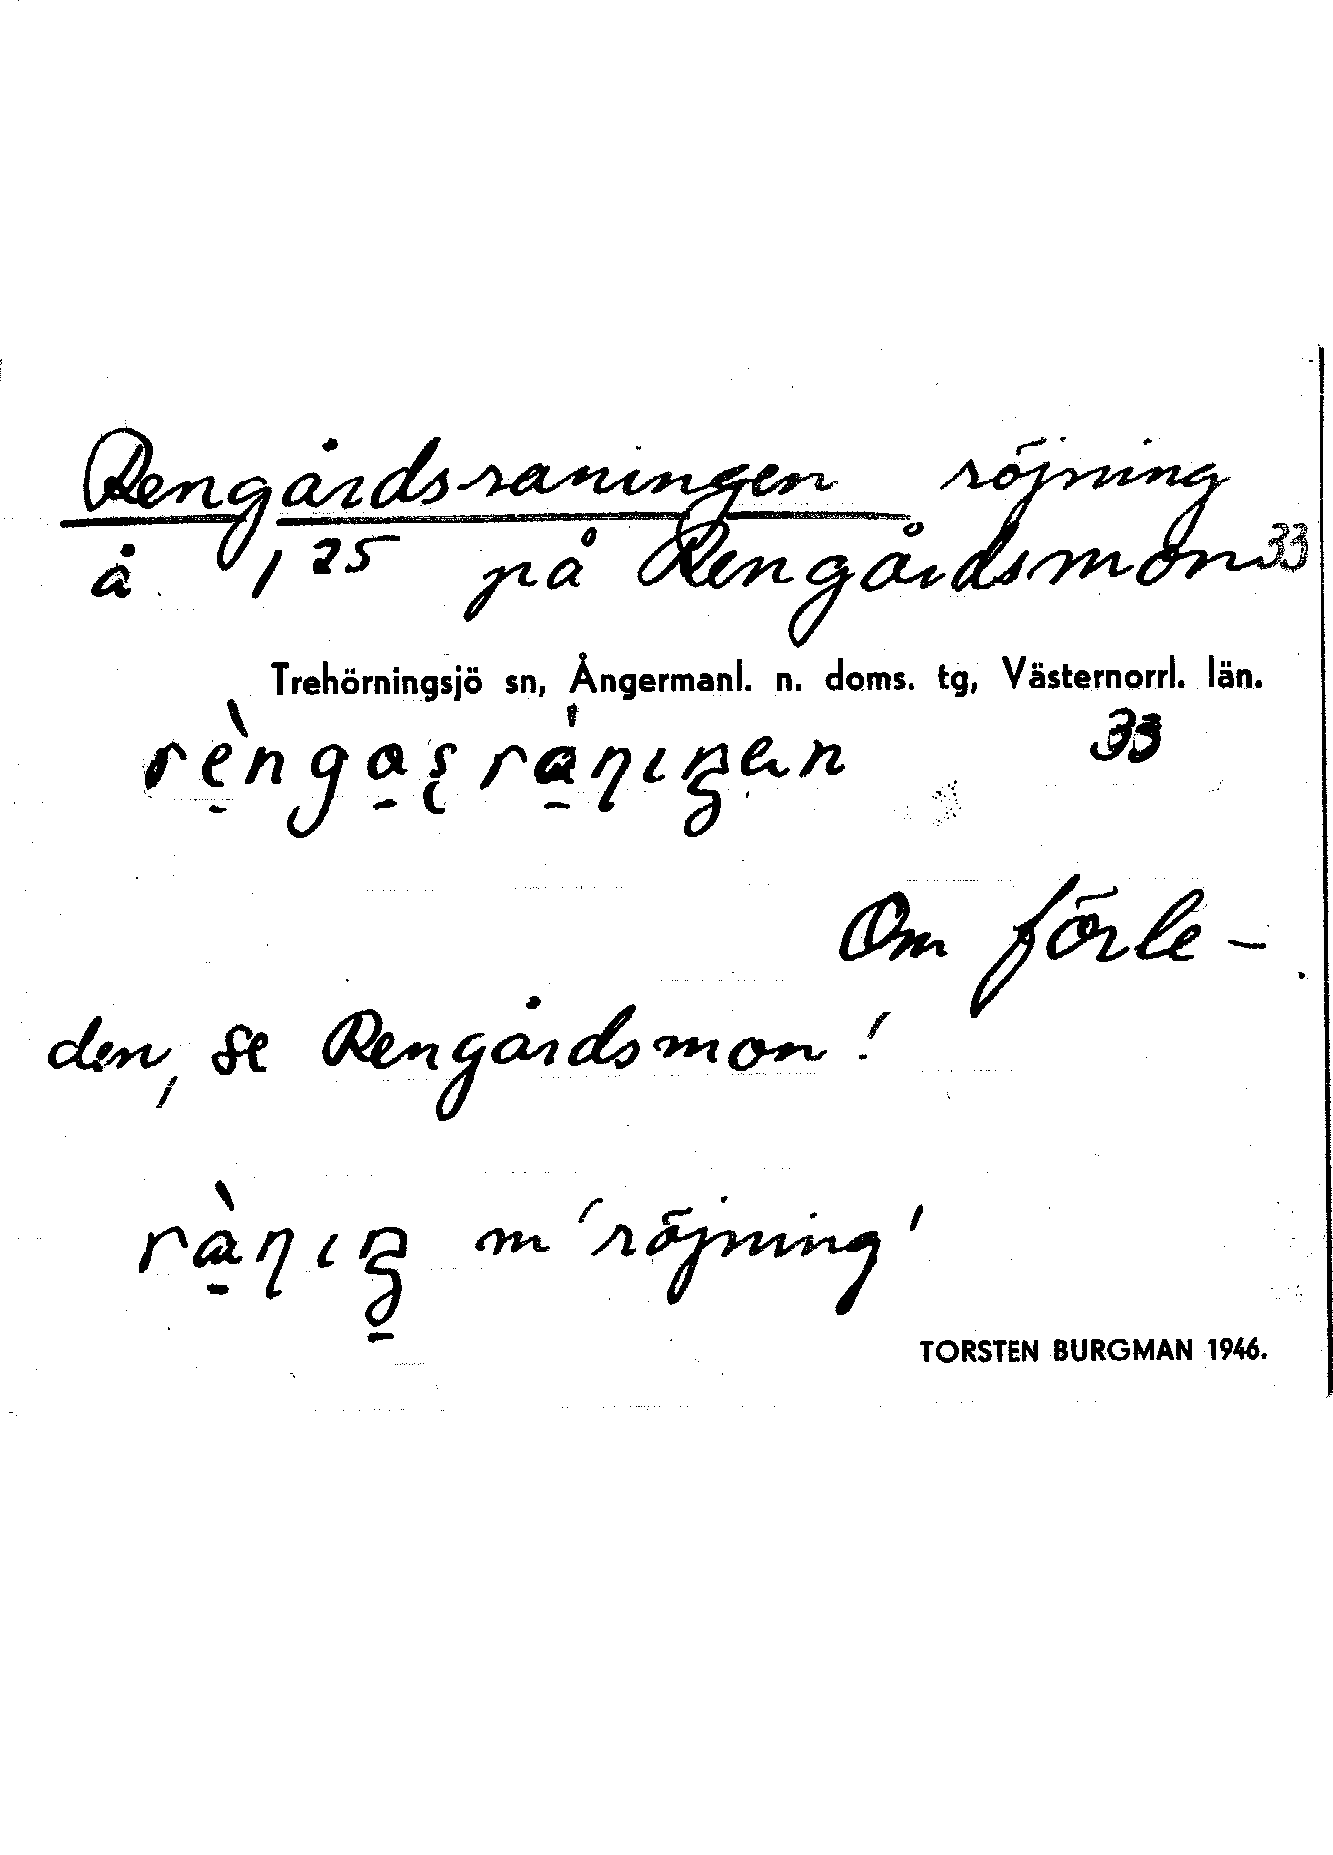 Rengårdsraningen röjning
å 1,25 på Rengårdsmon 33
Trehörningsjö sn, Ångermanl. n. doms. tg, Västernorrl. län.
33
Om förle-
den, se Rengårdsmon!
m 'röjning'
TORSTEN BURGMAN 1946.